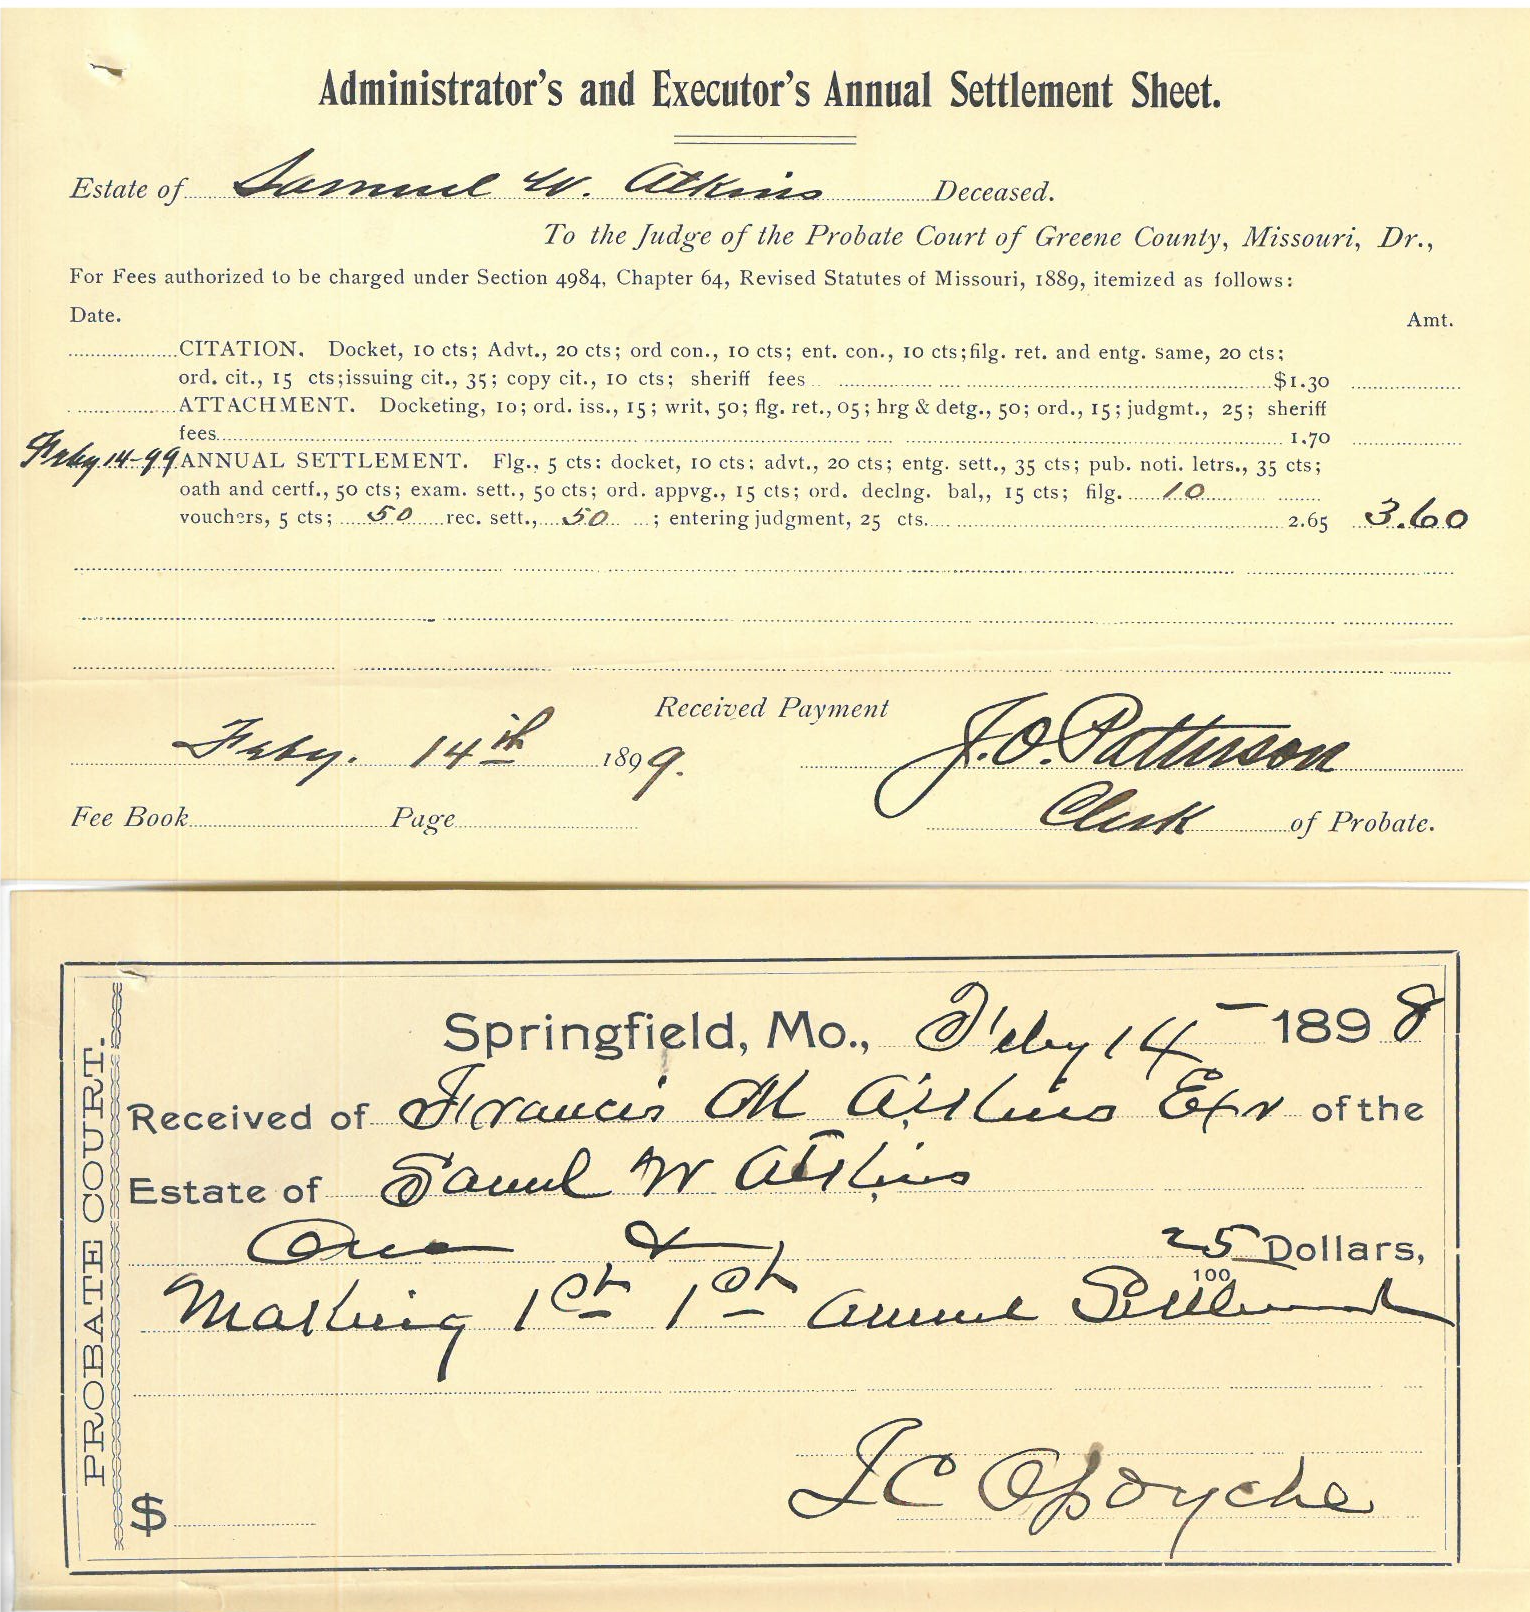 Administrator's and Executor's Annual Settlement Sheet.
Estate of Samuel W. Atkins Deceased.
To the Judge of the Probate Court of Greene County, Missouri, Dr.,
For Fees authorized to be charged under Section 4984, Chapter 64, Revised Statutes of Missouri, 1889, itemized as follows:
Date. Amt.
CITATION. Docket, 10 cts; Advt., 20 cts; ord con., 10 cts; ent. con., 10 cts;filg. ret. and entg. same, 20 cts;
ord. cit., 15 cts;issuing cit., 35; copy cit., 10 cts; sheriff fees $1.30
ATTACHMENT. Docketing, 10; ord. iss., 15; writ, 50; flg. ret., 05; hrg & detg., 50; ord., 15; judgmt., 25; sheriff
fees 1.70
Feby 14-99 ANNUAL SETTLEMENT. Flg., 5 cts: docket, 10 cts; advt., 20 cts; entg. sett., 35 cts; pub. noti. letrs., 35 cts;
oath and certf., 50 cts; exam. sett., 50 cts; ord. appvg., 15 cts; ord. declng. bal,, 15 cts; filg. 10
vouchers, 5 cts; 50 rec. sett., 50 ; entering judgment, 25 cts. 2.65 3.60
Received Payment
Feby. 14th 1899. J.O. Patterson
Fee Book Page Clerk of Probate.
PROBATE COURT.
Springfield, Mo., Feby 14 - 1898
Received of Francis M Atkins Exr of the
Estate of Samul W Atkins
One & 25 Dollars,
100
Making 1st 1st annual Settlement
$